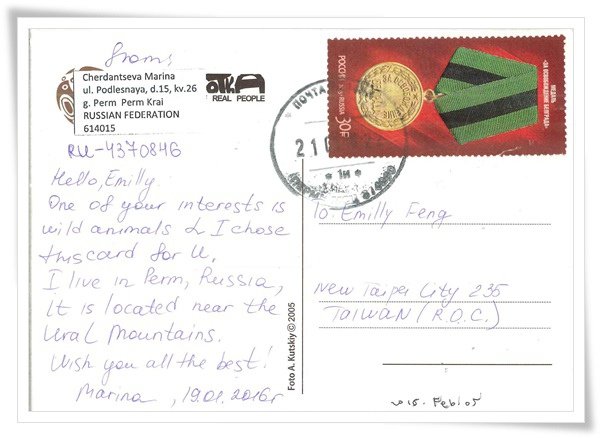 from:
Cherdantseva Marina
ul. Podlesnaya, d.15, kv.26
g. Perm Perm Krai
RUSSIAN FEDERATION
614015
OTKA
REAL PEOPLE
RU-4370846
Hello, Emilly.
One of your interests is
wild animals & I chose
this card for U.
I live in Perm, Russia,
It is located near the
Ural Mountains.
Wish you all the best!
Marina, 19.01.2016г
Foto A. Kutskiy © 2005
РОССИЯ RUSSIA
30₽
МЕДАЛЬ
«ЗА ОСВОБОЖДЕНИЕ БЕЛГРАДА»
ПОЧТА
210
To Emilly Feng
New Taipei City 235
TAIWAN (R.O.C.)
2016. Feb/05